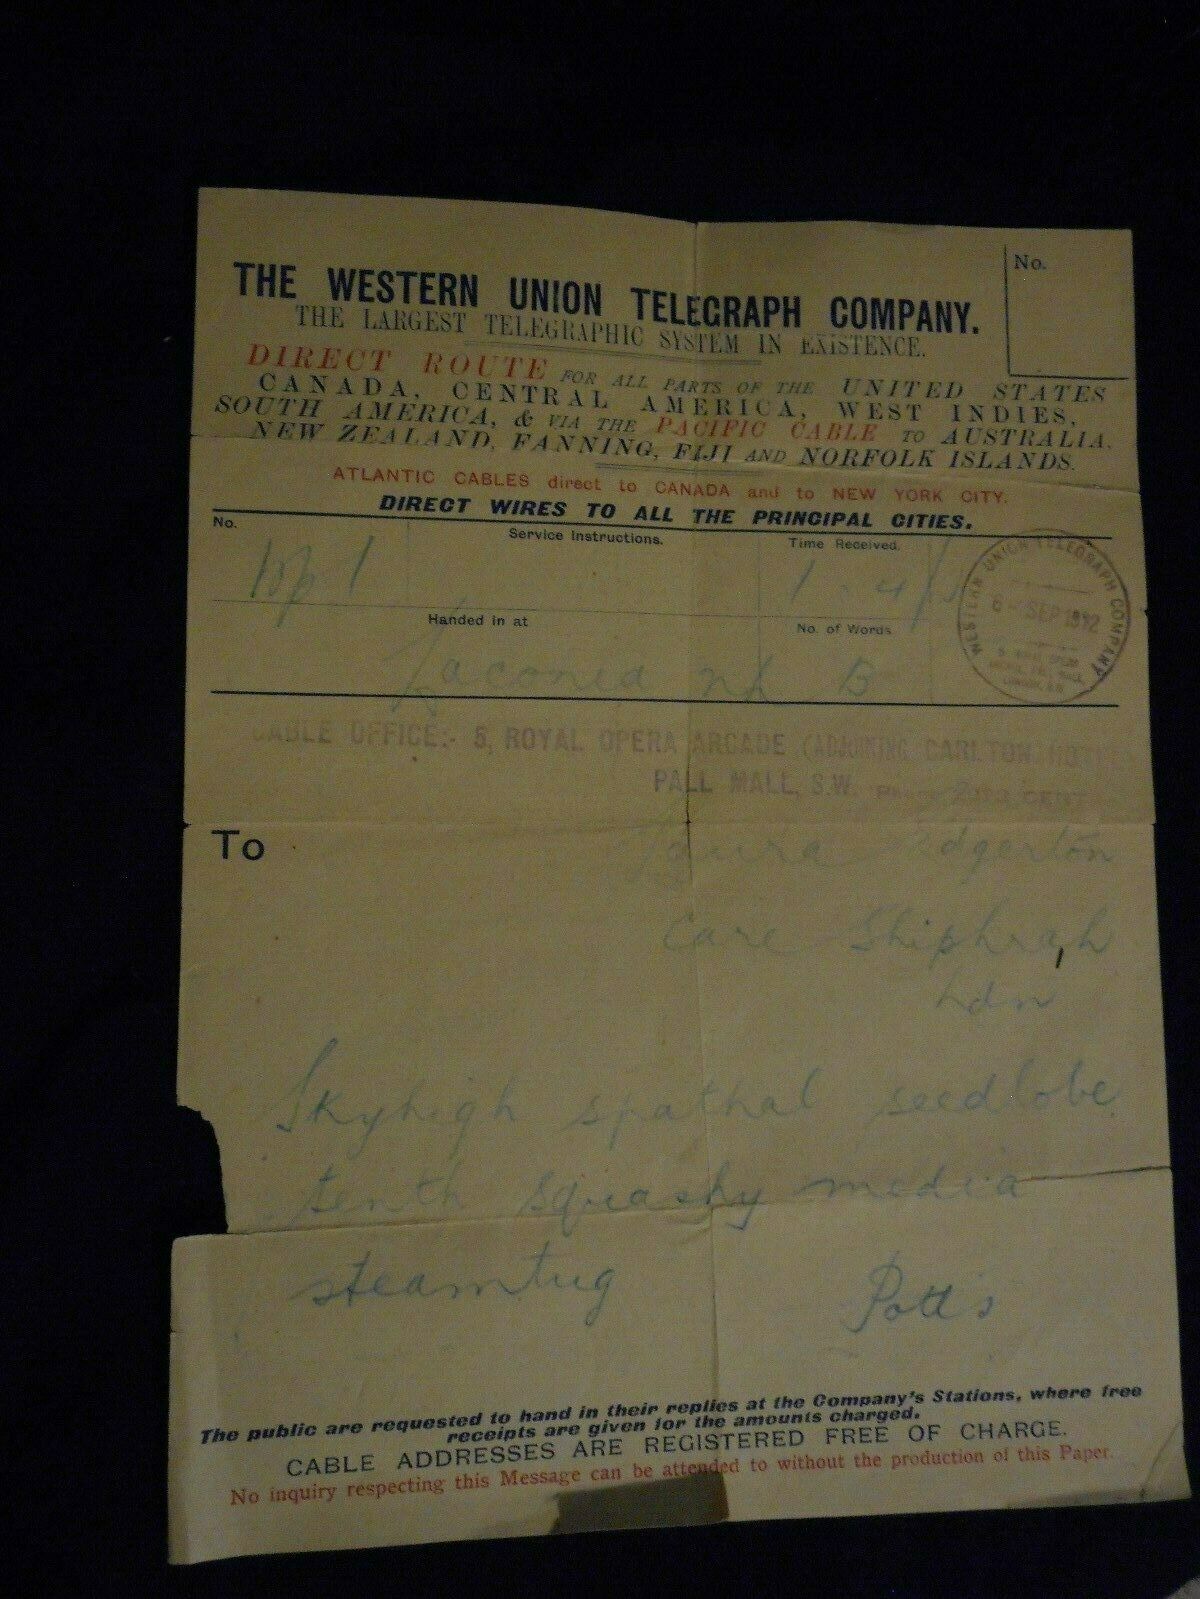 No.
THE WESTERN UNION TELEGRAPH COMPANY.
THE LARGEST TELEGRAPHIC SYSTEM IN EXISTENCE.
DIRECT ROUTE FOR ALL PARTS OF THE UNITED STATES
CANADA, CENTRAL AMERICA, WEST INDIES,
SOUTH AMERICA, & VIA THE PACIFIC CABLE TO AUSTRALIA,
NEW ZEALAND, FANNING, FIJI AND NORFOLK ISLANDS.
ATLANTIC CABLES direct to CANADA and to NEW YORK CITY.
DIRECT WIRES TO ALL THE PRINCIPAL CITIES.
No. Service Instructions. Time Received.
WESTERN UNION TELEGRAPH COMPANY
6 - SEP 1912
Handed in at No. of Words
Laconia nh
CABLE OFFICE:- 5, ROYAL OPERA ARCADE (ADJOINING CARLTON HOTEL)
PALL MALL, S.W.
To
Laura Edgerton
Care Shiphrah
Ldn
Skyhigh spathal seedlobe
tenth squashy media
steamtug Potts
The public are requested to hand in their replies at the Company's Stations, where free
receipts are given for the amounts charged.
CABLE ADDRESSES ARE REGISTERED FREE OF CHARGE.
No inquiry respecting this Message can be attended to without the production of this Paper.